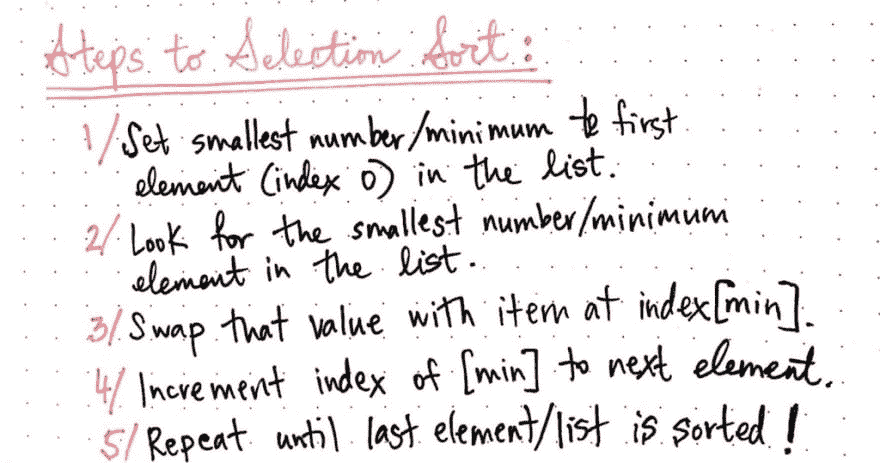 Steps to Selection Sort:
1/ Set smallest number/minimum to first
element (index 0) in the list.
2/ Look for the smallest number/minimum
element in the list.
3/ Swap that value with item at index[min].
4/ Increment index of [min] to next element.
5/ Repeat until last element/list is sorted!